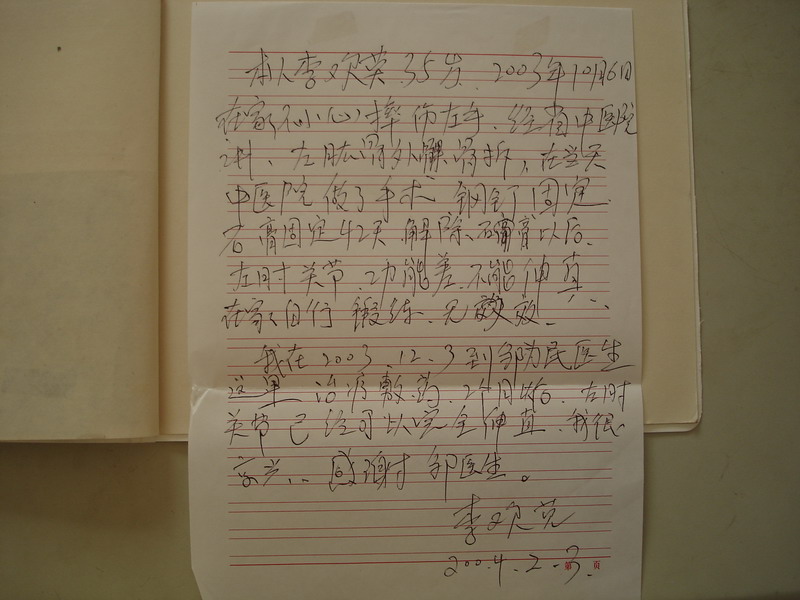 本人李欢英.35岁. 2003年10月6日
在家不小心摔伤左手.经省中医院
诊断、左肱骨外髁骨折,在当天
中医院做了手术 钢钉固定.
石膏固定42天 解除石膏以后.
左肘关节.功能差.不能伸直.
在家自行锻练.无效.
我在2003.12.3到邹为民医生
这里治疗敷药.2个月后.左肘
关节已经可以完全伸直.我很
高兴.感谢邹医生。
李欢英
2004.2-3.
第 页